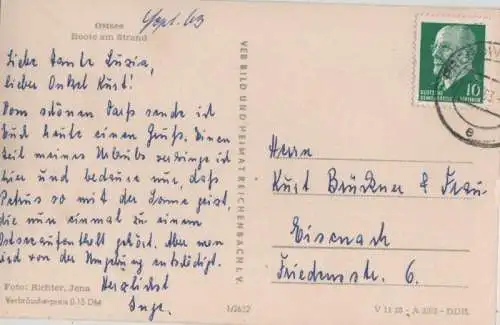 Ostsee
Boote am Strand
Sept. 63
Liebe Tante Luzia,
lieber Onkel Kurt!
Vom schönen Darß sende ich
Euch heute einen Gruß. Einen
Teil meines Urlaubs verbringe ich
hier und bedaure nur, daß
Petrus so mit der Sonne geizt,
die nun einmal zu einem
Ostseeaufenthalt gehört. Aber man
wird von der Umgebung entschädigt.
Herzlichst
Inge.
Foto: Richter, Jena
Verbraucherpreis 0,15 DM
VEB BILD UND HEIMAT REICHENBACH I. V.
1/2622
DEUTSCHE
DEMOKRATISCHE REPUBLIK
10
e
Herrn
Kurt Brückner & Frau
Eisenach
Friedensstr. 6.
DDR